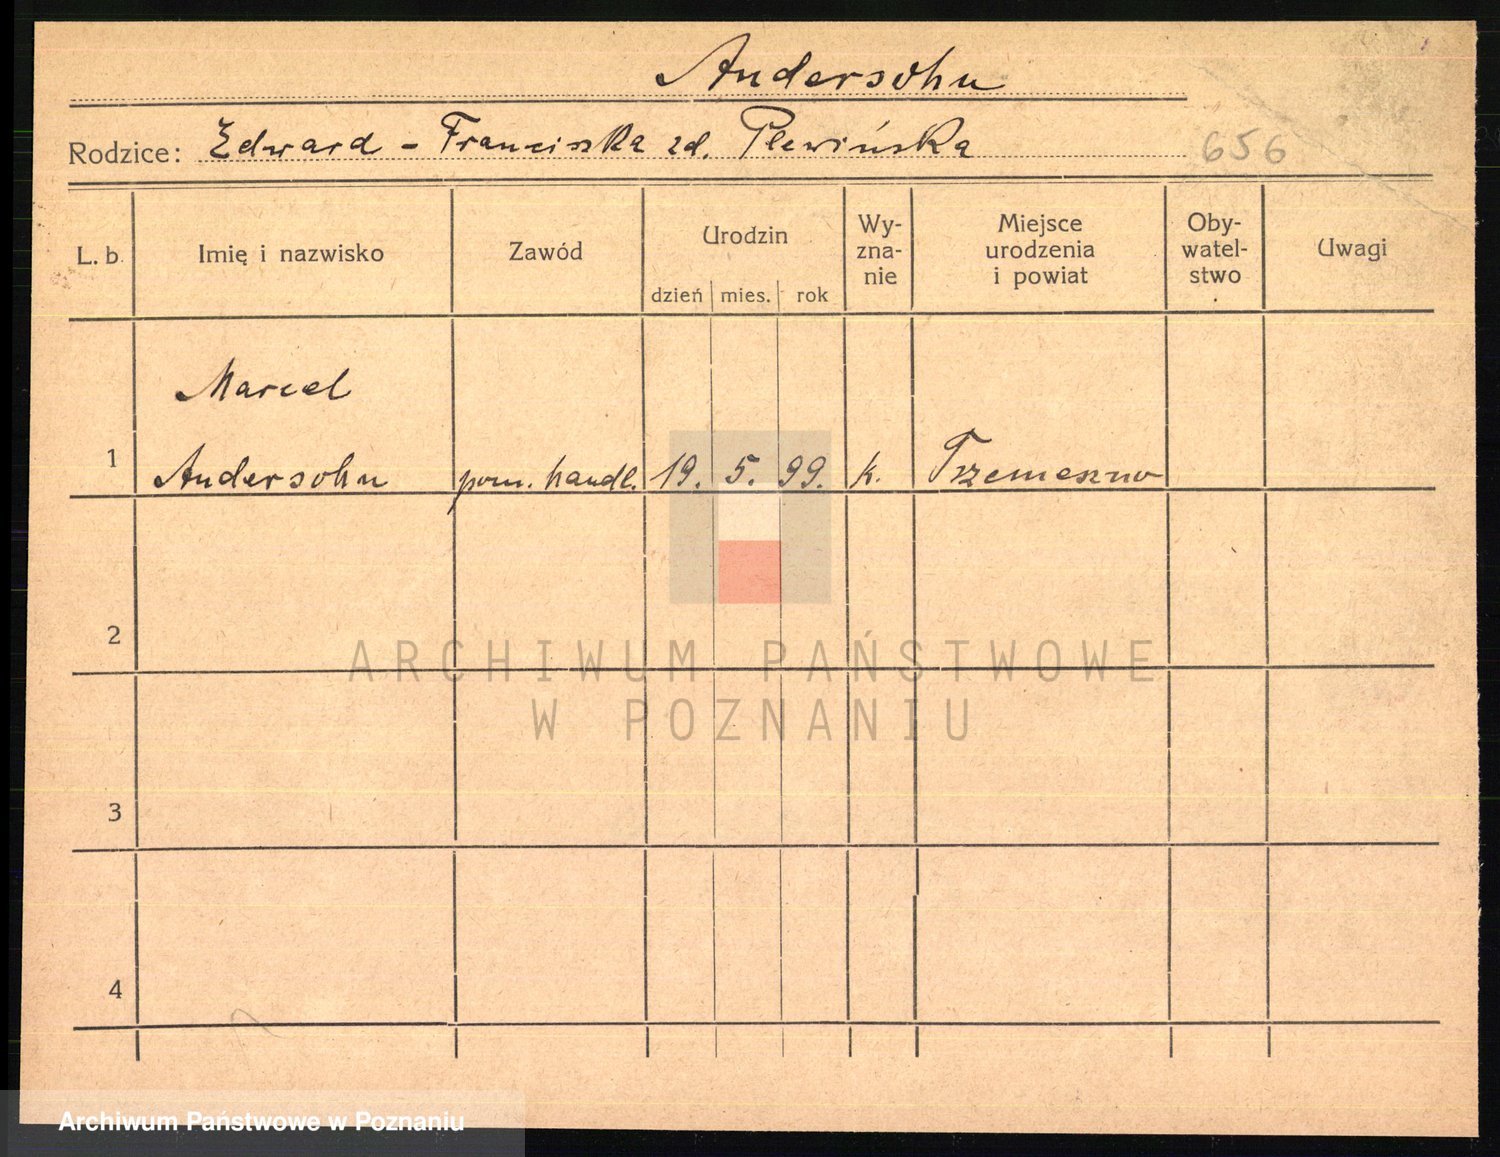 Andersohn
Rodzice: Edward - Franciszka zd. Plewińska 656
L. b. Imię i nazwisko Zawód Urodzin Wy-zna-nie Miejsce urodzenia i powiat Oby-watel-stwo Uwagi
dzień mies. rok
Marcel
1 Andersohn pom. handl. 19. 5. 99. k. Trzemeszno
2
ARCHIWUM PAŃSTWOWE
W POZNANIU
3
4
Archiwum Państwowe w Poznaniu